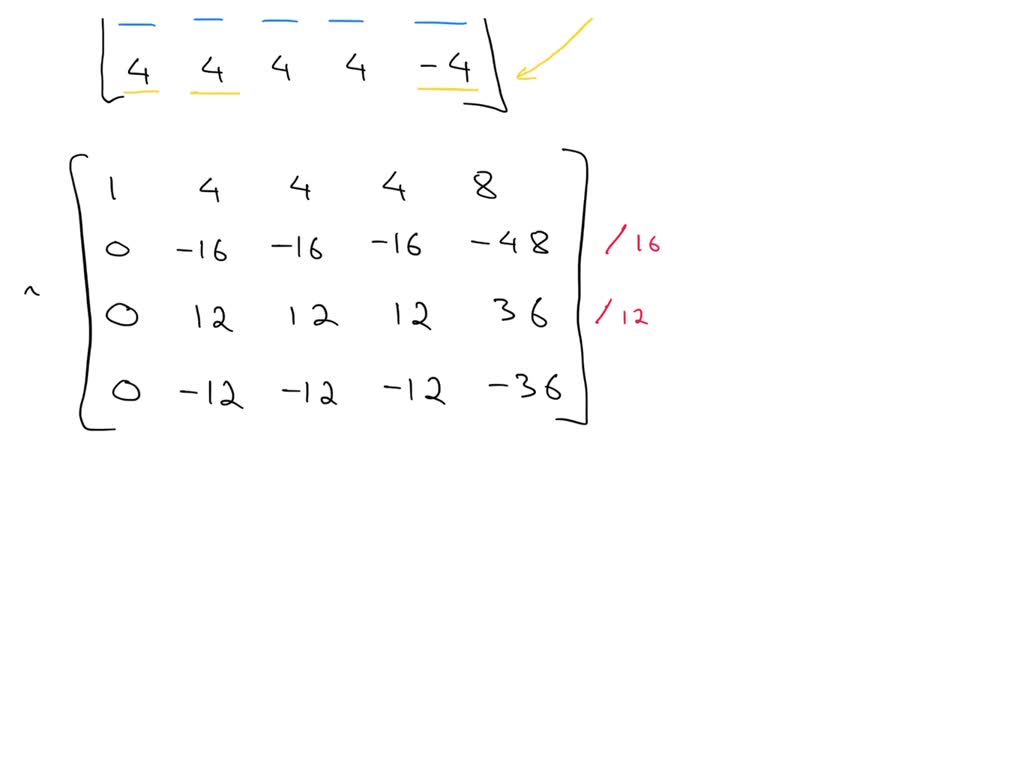 4 4 4 4 -4
1 4 4 4 8
0 -16 -16 -16 -48 /16
~ 0 12 12 12 36 /12
0 -12 -12 -12 -36